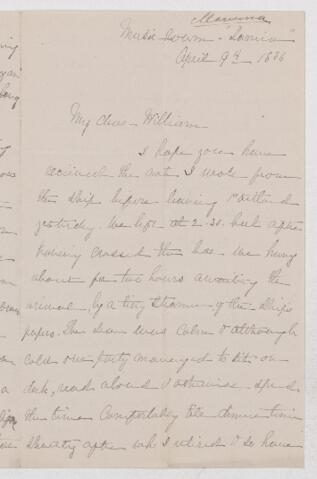 Mamma
Music Room - "Samia"
April 9th 1886
My dear William
I hope you have
received the note I wrote from
the ship before leaving Portland
yesterday. We left at 2-30. but after
having crossed the bar we hung
about for two hours awaiting the
arrival by a tiny steamer of the ships
papers. The sea was calm & although
cold our party managed to sit on
deck, read aloud & otherwise spend
the time comfortably till dinner time
shortly after wh. I retired & so have